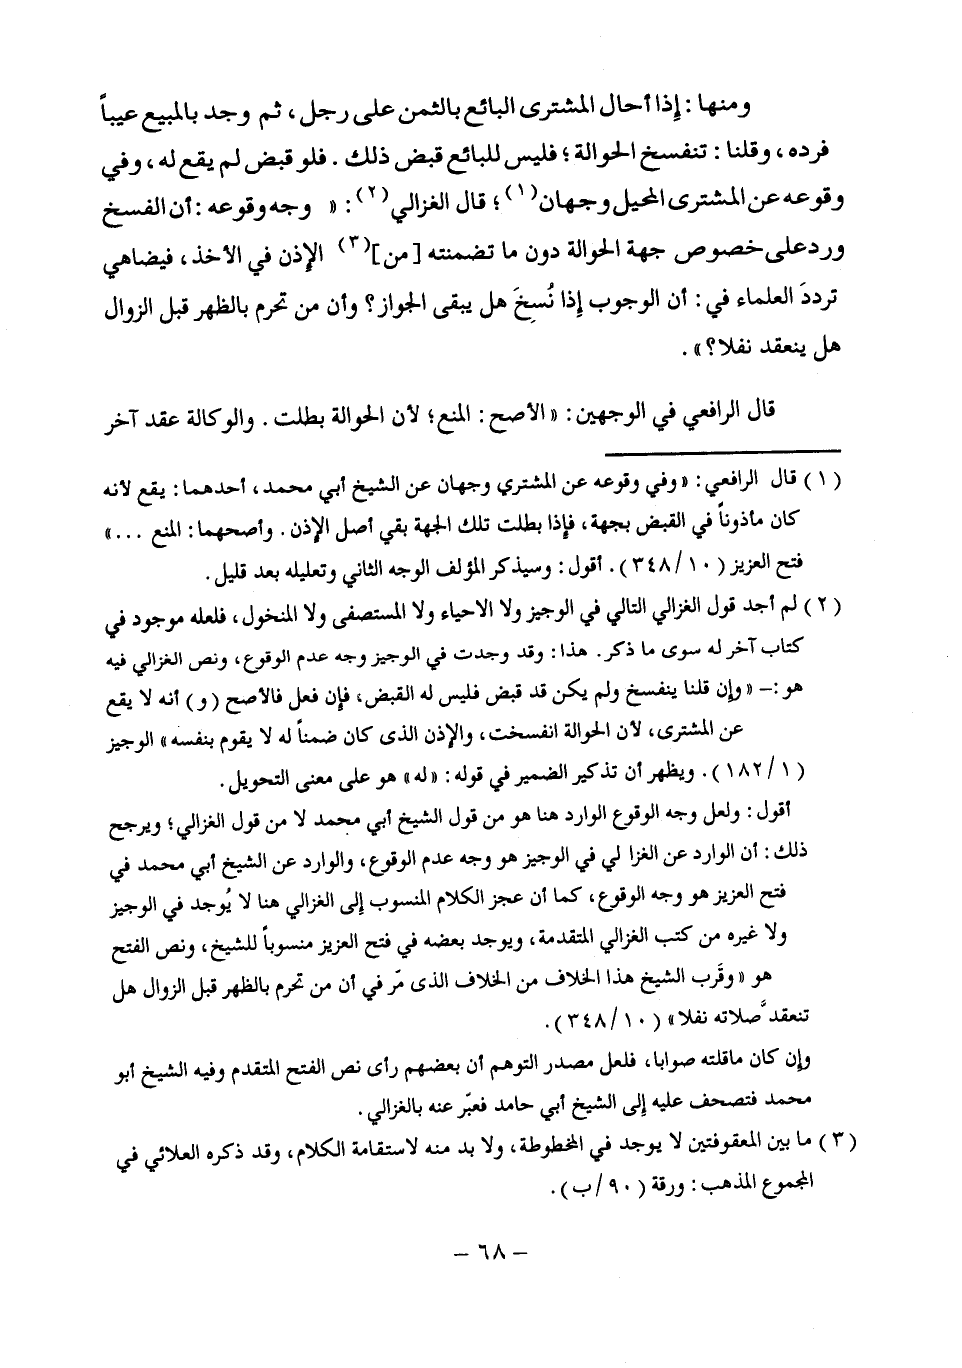 ومنها : إذا أحال المشترى البائع بالثمن على رجل ، ثم وجد بالمبيع عيباً
فرده ، وقلنا : تنفسخ الحوالة ؛ فليس للبائع قبض ذلك . فلو قبض لم يقع له ، وفي
وقوعه عن المشترى المحيل وجهان (١) ؛ قال الغزالي (٢) : « وجه وقوعه : أن الفسخ
ورد على خصوص جهة الحوالة دون ما تضمنته [ من ] (٣) الإذن في الأخذ ، فيضاهي
ترددَ العلماء في : أن الوجوب إذا نُسِخَ هل يبقى الجواز ؟ وأن من تحرم بالظهر قبل الزوال
هل ينعقد نفلا ؟ » .
قال الرافعي في الوجهين : « الأصح : المنع ؛ لأن الحوالة بطلت . والوكالة عقد آخر
(١) قال الرافعي : « وفي وقوعه عن المشتري وجهان عن الشيخ أبي محمد ، أحدهما : يقع لأنه
كان مأذوناً في القبض بجهة ، فإذا بطلت تلك الجهة بقي أصل الإذن . وأصحهما : المنع ... »
فتح العزيز ( ١٠ / ٣٤٨ ) . أقول : وسيذكر المؤلف الوجه الثاني وتعليله بعد قليل .
(٢) لم أجد قول الغزالي التالي في الوجيز ولا الاحياء ولا المستصفى ولا المنخول ، فلعله موجود في
كتاب آخر له سوى ما ذكر . هذا : وقد وجدت في الوجيز وجه عدم الوقوع ، ونص الغزالي فيه
هو :– « وإن قلنا ينفسخ ولم يكن قد قبض فليس له القبض ، فإن فعل فالأصح ( و ) أنه لا يقع
عن المشترى ، لأن الحوالة انفسخت ، والإذن الذى كان ضمناً له لا يقوم بنفسه » الوجيز
( ١ / ١٨٢ ) . ويظهر أن تذكير الضمير في قوله : « له » هو على معنى التحويل .
أقول : ولعل وجه الوقوع الوارد هنا هو من قول الشيخ أبي محمد لا من قول الغزالي ؛ ويرجح
ذلك : أن الوارد عن الغزا لي في الوجيز هو وجه عدم الوقوع ، والوارد عن الشيخ أبي محمد في
فتح العزيز هو وجه الوقوع ، كما أن عجز الكلام المنسوب إلى الغزالي هنا لا يُوجد في الوجيز
ولا غيره من كتب الغزالي المتقدمة ، ويوجد بعضه في فتح العزيز منسوباً للشيخ ، ونص الفتح
هو « وقَرب الشيخ هذا الخلاف من الخلاف الذى مّر في أن من تحرم بالظهر قبل الزوال هل
تنعقد صلاته نفلا » ( ١٠ / ٣٤٨ ) .
وإن كان ماقلته صوابا ، فلعل مصدر التوهم أن بعضهم رأى نص الفتح المتقدم وفيه الشيخ أبو
محمد فتصحف عليه إلى الشيخ أبي حامد فعبّر عنه بالغزالي .
(٣) ما بين المعقوفتين لا يوجد في المخطوطة ، ولا بد منه لاستقامة الكلام ، وقد ذكره العلائي في
المجموع المذهب : ورقة ( ٩٠ / ب ) .
– ٦٨ –